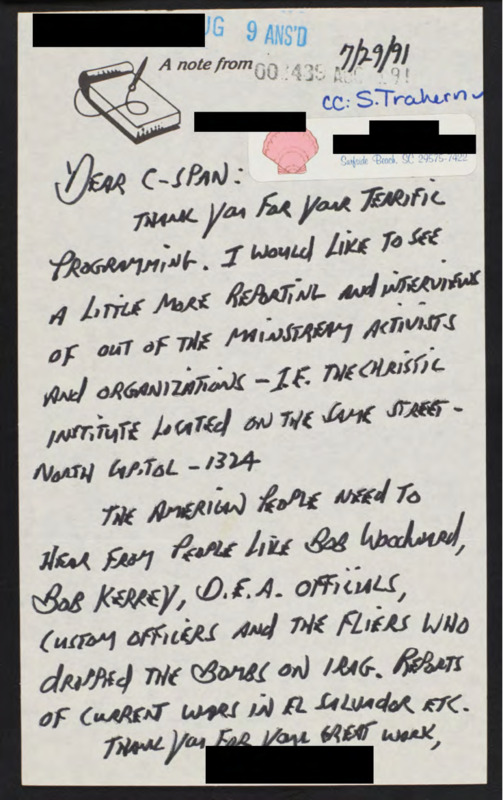 UG 9 ANS'D
7/29/91
A note from
cc: S. Trahern
Surfside Beach, SC 29575-7422
DEAR C-SPAN:
THANK YOU FOR YOUR TERRIFIC
PROGRAMMING. I WOULD LIKE TO SEE
A LITTLE MORE REPORTING AND INTERVIEWS
OF OUT OF THE MAINSTREAM ACTIVISTS
AND ORGANIZATIONS - I.E. THE CHRISTIC
INSTITUTE LOCATED ON THE SAME STREET -
NORTH CAPITOL - 1324
THE AMERICAN PEOPLE NEED TO
HEAR FROM PEOPLE LIKE BOB WOODWARD,
BOB KERREY, D.E.A. OFFICIALS,
CUSTOM OFFICERS AND THE FLIERS WHO
DROPPED THE BOMBS ON IRAQ. REPORTS
OF CURRENT WARS IN EL SALVADOR ETC.
THANK YOU FOR YOUR GREAT WORK,